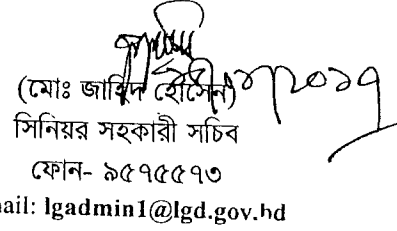 (মোঃ জাহিদ হোসেন)
সিনিয়র সহকারী সচিব
ফোন- ৯৫৭৫৫৭৩
ail: lgadmin1@lgd.gov.bd